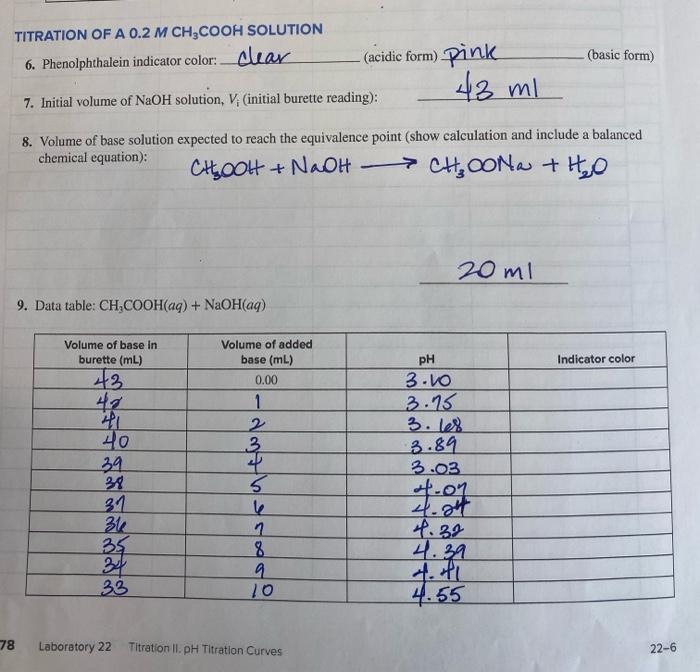 TITRATION OF A 0.2 M CH₃COOH SOLUTION
6. Phenolphthalein indicator color: clear (acidic form) pink (basic form)
7. Initial volume of NaOH solution, Vᵢ (initial burette reading): 43 ml
8. Volume of base solution expected to reach the equivalence point (show calculation and include a balanced
chemical equation):
CH₃OOH + NaOH ⟶ CH₃OONa + H₂O
20 ml
9. Data table: CH₃COOH(aq) + NaOH(aq)
Volume of base in burette (mL) Volume of added base (mL) pH Indicator color
43 0.00 3.10
42 1 3.75
41 2 3.68
40 3 3.89
39 4 3.03
38 5 4.07
37 6 4.24
36 7 4.32
35 8 4.39
34 9 4.41
33 10 4.55
78 Laboratory 22 Titration II. pH Titration Curves 22–6